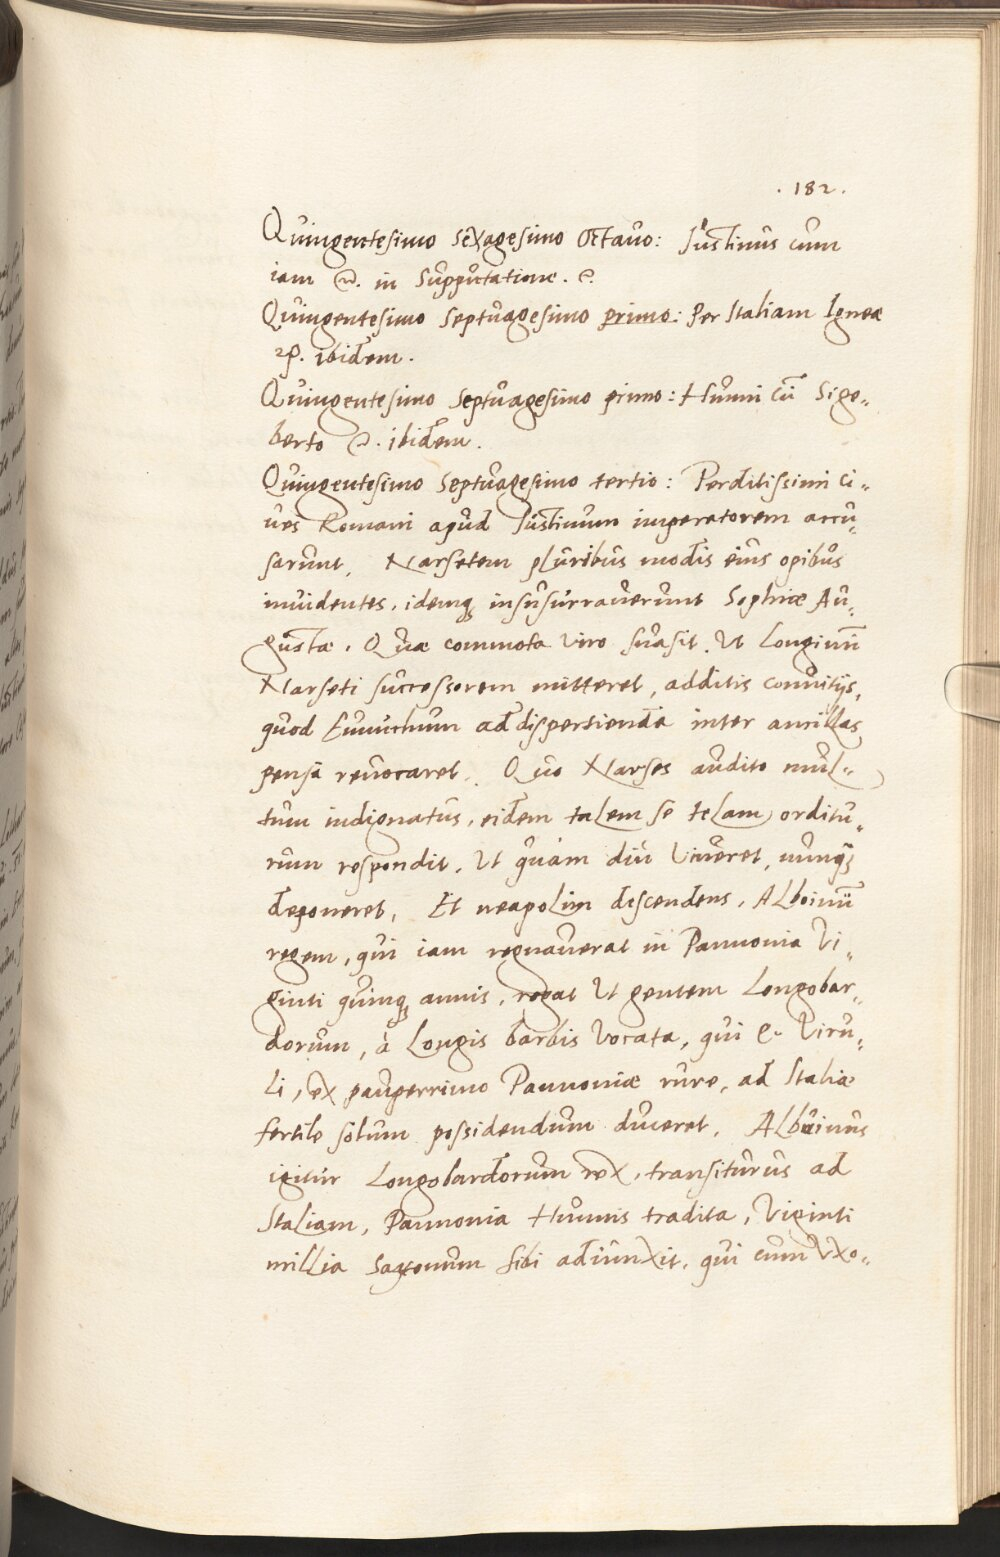 . 182 .
Quingentesimo sexagesimo octavo: Justinus cum
iam &. in supputatione. &.
Quingentesimo septuagesimo primo: Per Italiam Igneæ
ibidem.
Quingentesimo septuagesimo primo: Hunni cū Sige„
berto &. ibidem.
Quingentesimo septuagesimo tertio: Perditissimi ci„
ves Romani apud Justinum imperatorem accu„
sarunt, Narsetem pluribus modis eius opibus
invidentes, idemq; insusurraverunt Sophiæ Au„
gustæ. Quæ commota viro suasit, Ut Longinū
Narseti successorem mitteret, additis convitijs,
quod Eunuchum ad dispertienda inter ancillas
pensa revocaret. Quo Narses audito mul„
tum indignatus, eidem talem se telam orditu„
rum respondit, Ut quàm diu viveret, nunq̃;
deponeret, Et neapolim descendens, Alboinū
regem, qui iam regnaverat in Pannonia vi„
ginti quinq; annis, rogat Ut gentem Longobar„
dorum, à Longis barbis vocata, qui & Viru„
li, ex pauperrimo Pannoniæ rure, ad Italiæ
fertile solum possidendum duceret, Albuinus
igitur Longobardorum rex, transiturus ad
Italiam, Pannonia Hunnis tradita, Viginti
millia Saxonum sibi adiunxit, qui cum Uxo„